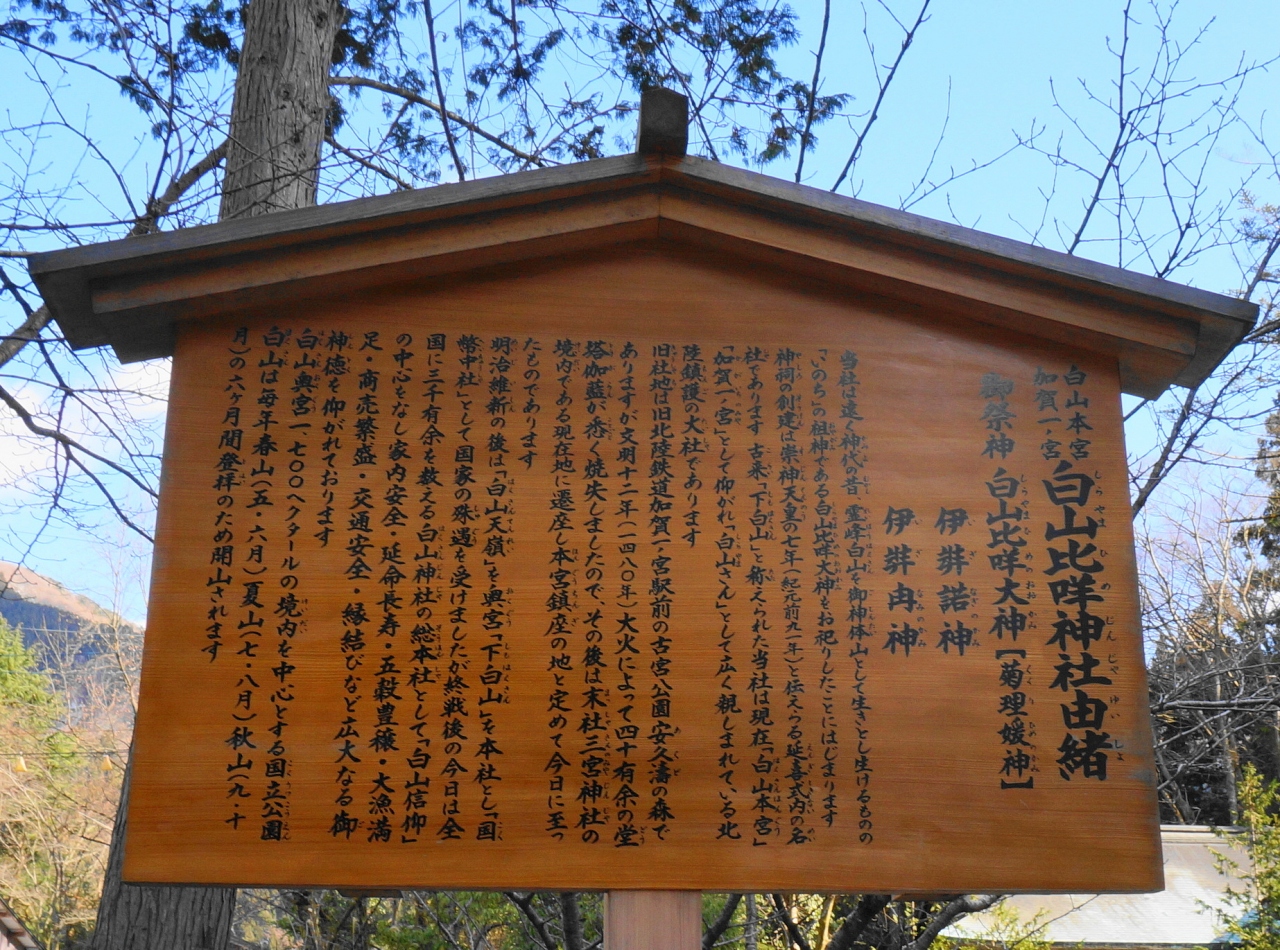 白山本宮
加賀一ノ宮
白山比咩神社由緒
御祭神 白山比咩大神【菊理媛神】
伊弉諾神
伊弉冉神
当社は遠く神代の昔 霊峰白山を御神体山として生きとし生けるものの
「いのち」の祖神である白山比咩大神をお祀りしたことにはじまります
神祠の創建は崇神天皇の七年(紀元前九一年)と伝えらる延喜式内の名
社であります 古来「下白山」と称えられた当社は現在「白山本宮」
「加賀一ノ宮」として仰がれ「白山さん」として広く親しまれている北
陸鎮護の大社であります
旧社地は旧北陸鉄道加賀一ノ宮駅前の古宮公園安久濤の森で
ありますが文明十二年(一四八〇年)大火によって四十有余の堂
塔伽藍が悉く焼失しましたので、その後は末社三宮神社の
境内である現在地に遷座し本宮鎮座の地と定めて今日に至っ
たものであります
明治維新の後は「白山天嶺」を奥宮「下白山」を本社とし「国
幣中社」として国家の殊遇を受けましたが終戦後の今日は全
国に三千有余を数える白山神社の総本社として「白山信仰」
の中心をなし家内安全・延命長寿・五穀豊穣・大漁満
足・商売繁盛・交通安全・縁結びなど広大なる御
神徳を仰がれております
白山奥宮一七〇〇ヘクタールの境内を中心とする国立公園
白山は毎年春山(五・六月)夏山(七・八月)秋山(九・十
月)の六ヶ月間登拝のため開山されます